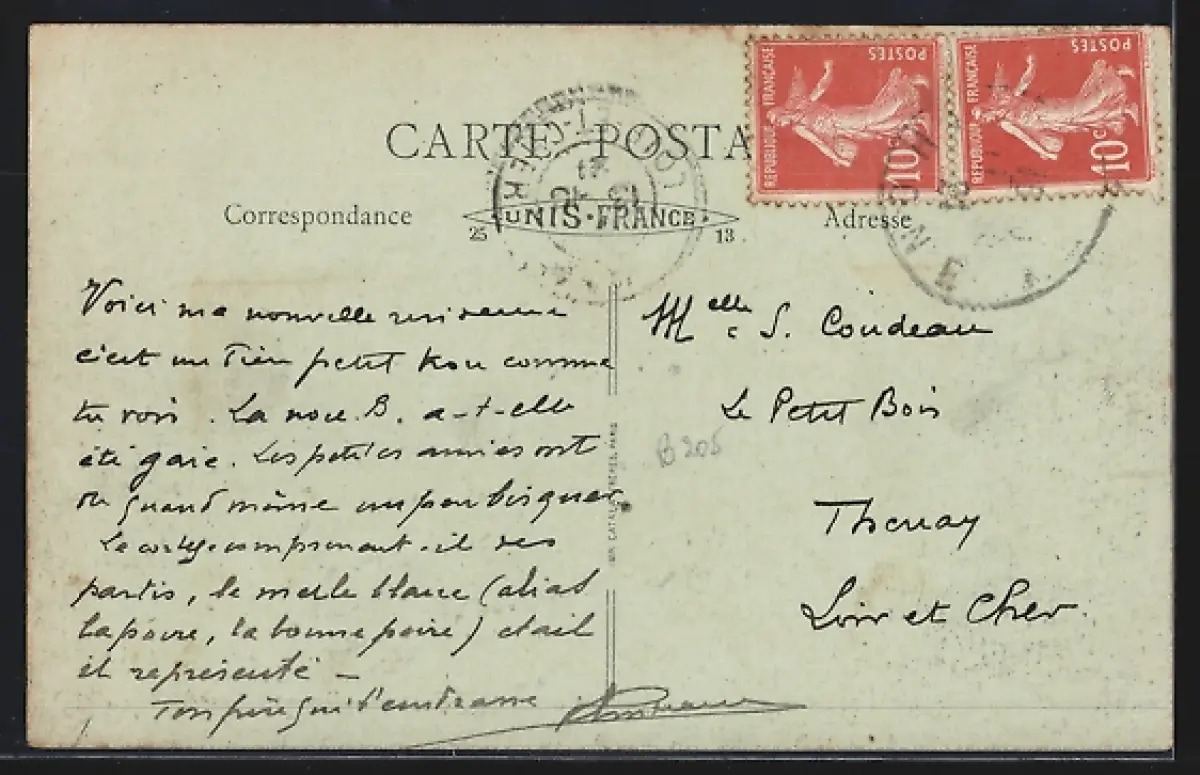 CARTE POSTA
RÉPUBLIQUE FRANÇAISE
POSTES
10c
RÉPUBLIQUE FRANÇAISE
POSTES
10c
Correspondance
25 UNIS-FRANCE 13
Adresse
Voici ma nouvelle residence
c'est un Tien petit
comme
tu vois. La noce B. a-t-elle
été gaie. Les petites amies ont
du quand même un peu bisquer
Le cortège comprenait-il des
partis, le merle blanc (alias
la poire, la bonne poire) était
il représenté —
Ton père qui t'embrasse
Coudeau
Melle S. Coudeau
Le Petit Bois
B205
Thenay
Loir et Cher